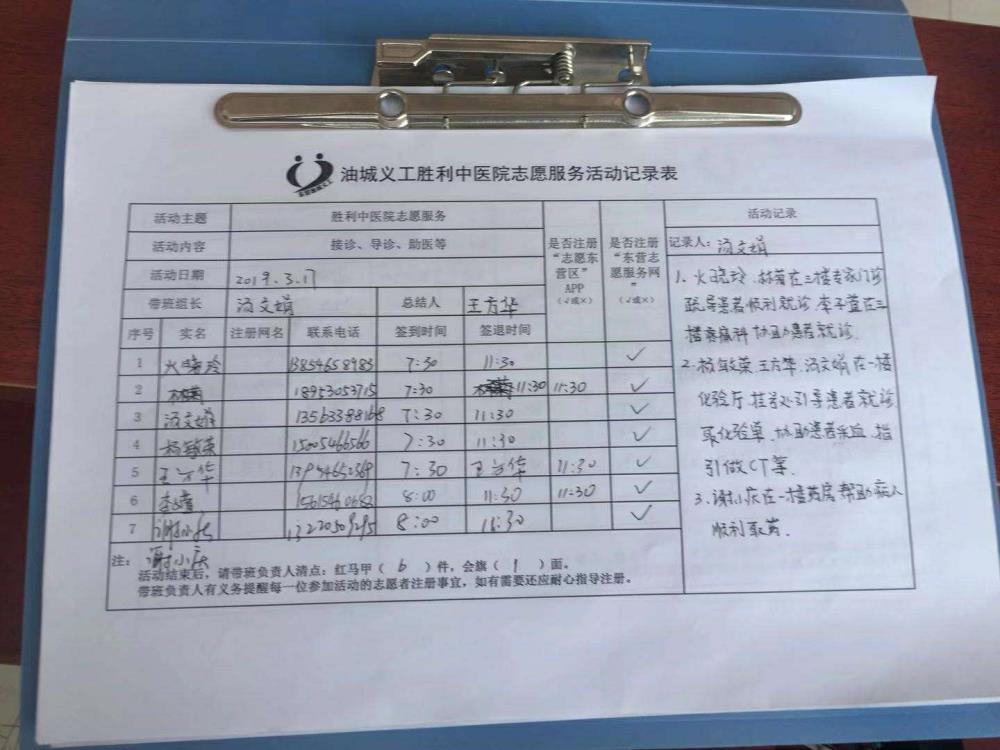 油城义工胜利中医院志愿服务活动记录表
活动主题 胜利中医院志愿服务
活动内容 接诊、导诊、助医等
活动日期 2019.3.17
带班组长 汤文娟 总结人 王方华
序号 实名 注册网名 联系电话 签到时间 签退时间 是否注册“志愿东营区”APP（√或×） 是否注册“东营志愿服务网”（√或×）
1 火晓玲 13854658983 7:30 11:30 √
2 18953053715 7:30 11:30 11:30 √
3 汤文娟 13563388168 7:30 11:30 √
4 杨敏荣 15005466566 7:30 11:30 √
5 王方华 7:30 王方华 11:30 √
6 8:00 11:30 11:30 √
7 谢小庆 8:00 11:30 √
谢小庆
注：
活动结束后，请带班负责人清点：红马甲（ 6 ）件，会旗（ 1 ）面。
带班负责人有义务提醒每一位参加活动的志愿者注册事宜，如有需要还应耐心指导注册。
活动记录
记录人：汤文娟
1、火晓玲、林菊在三楼专家门诊
疏导患者顺利就诊，李子萱在三
楼疼痛科协助患者就诊。
2、杨敏荣、王方华、汤文娟在一楼
化验厅、挂号处引导患者就诊
取化验单，协助患者采血，指
引做CT等。
3、谢小庆在一楼药房帮助病人
顺利取药。